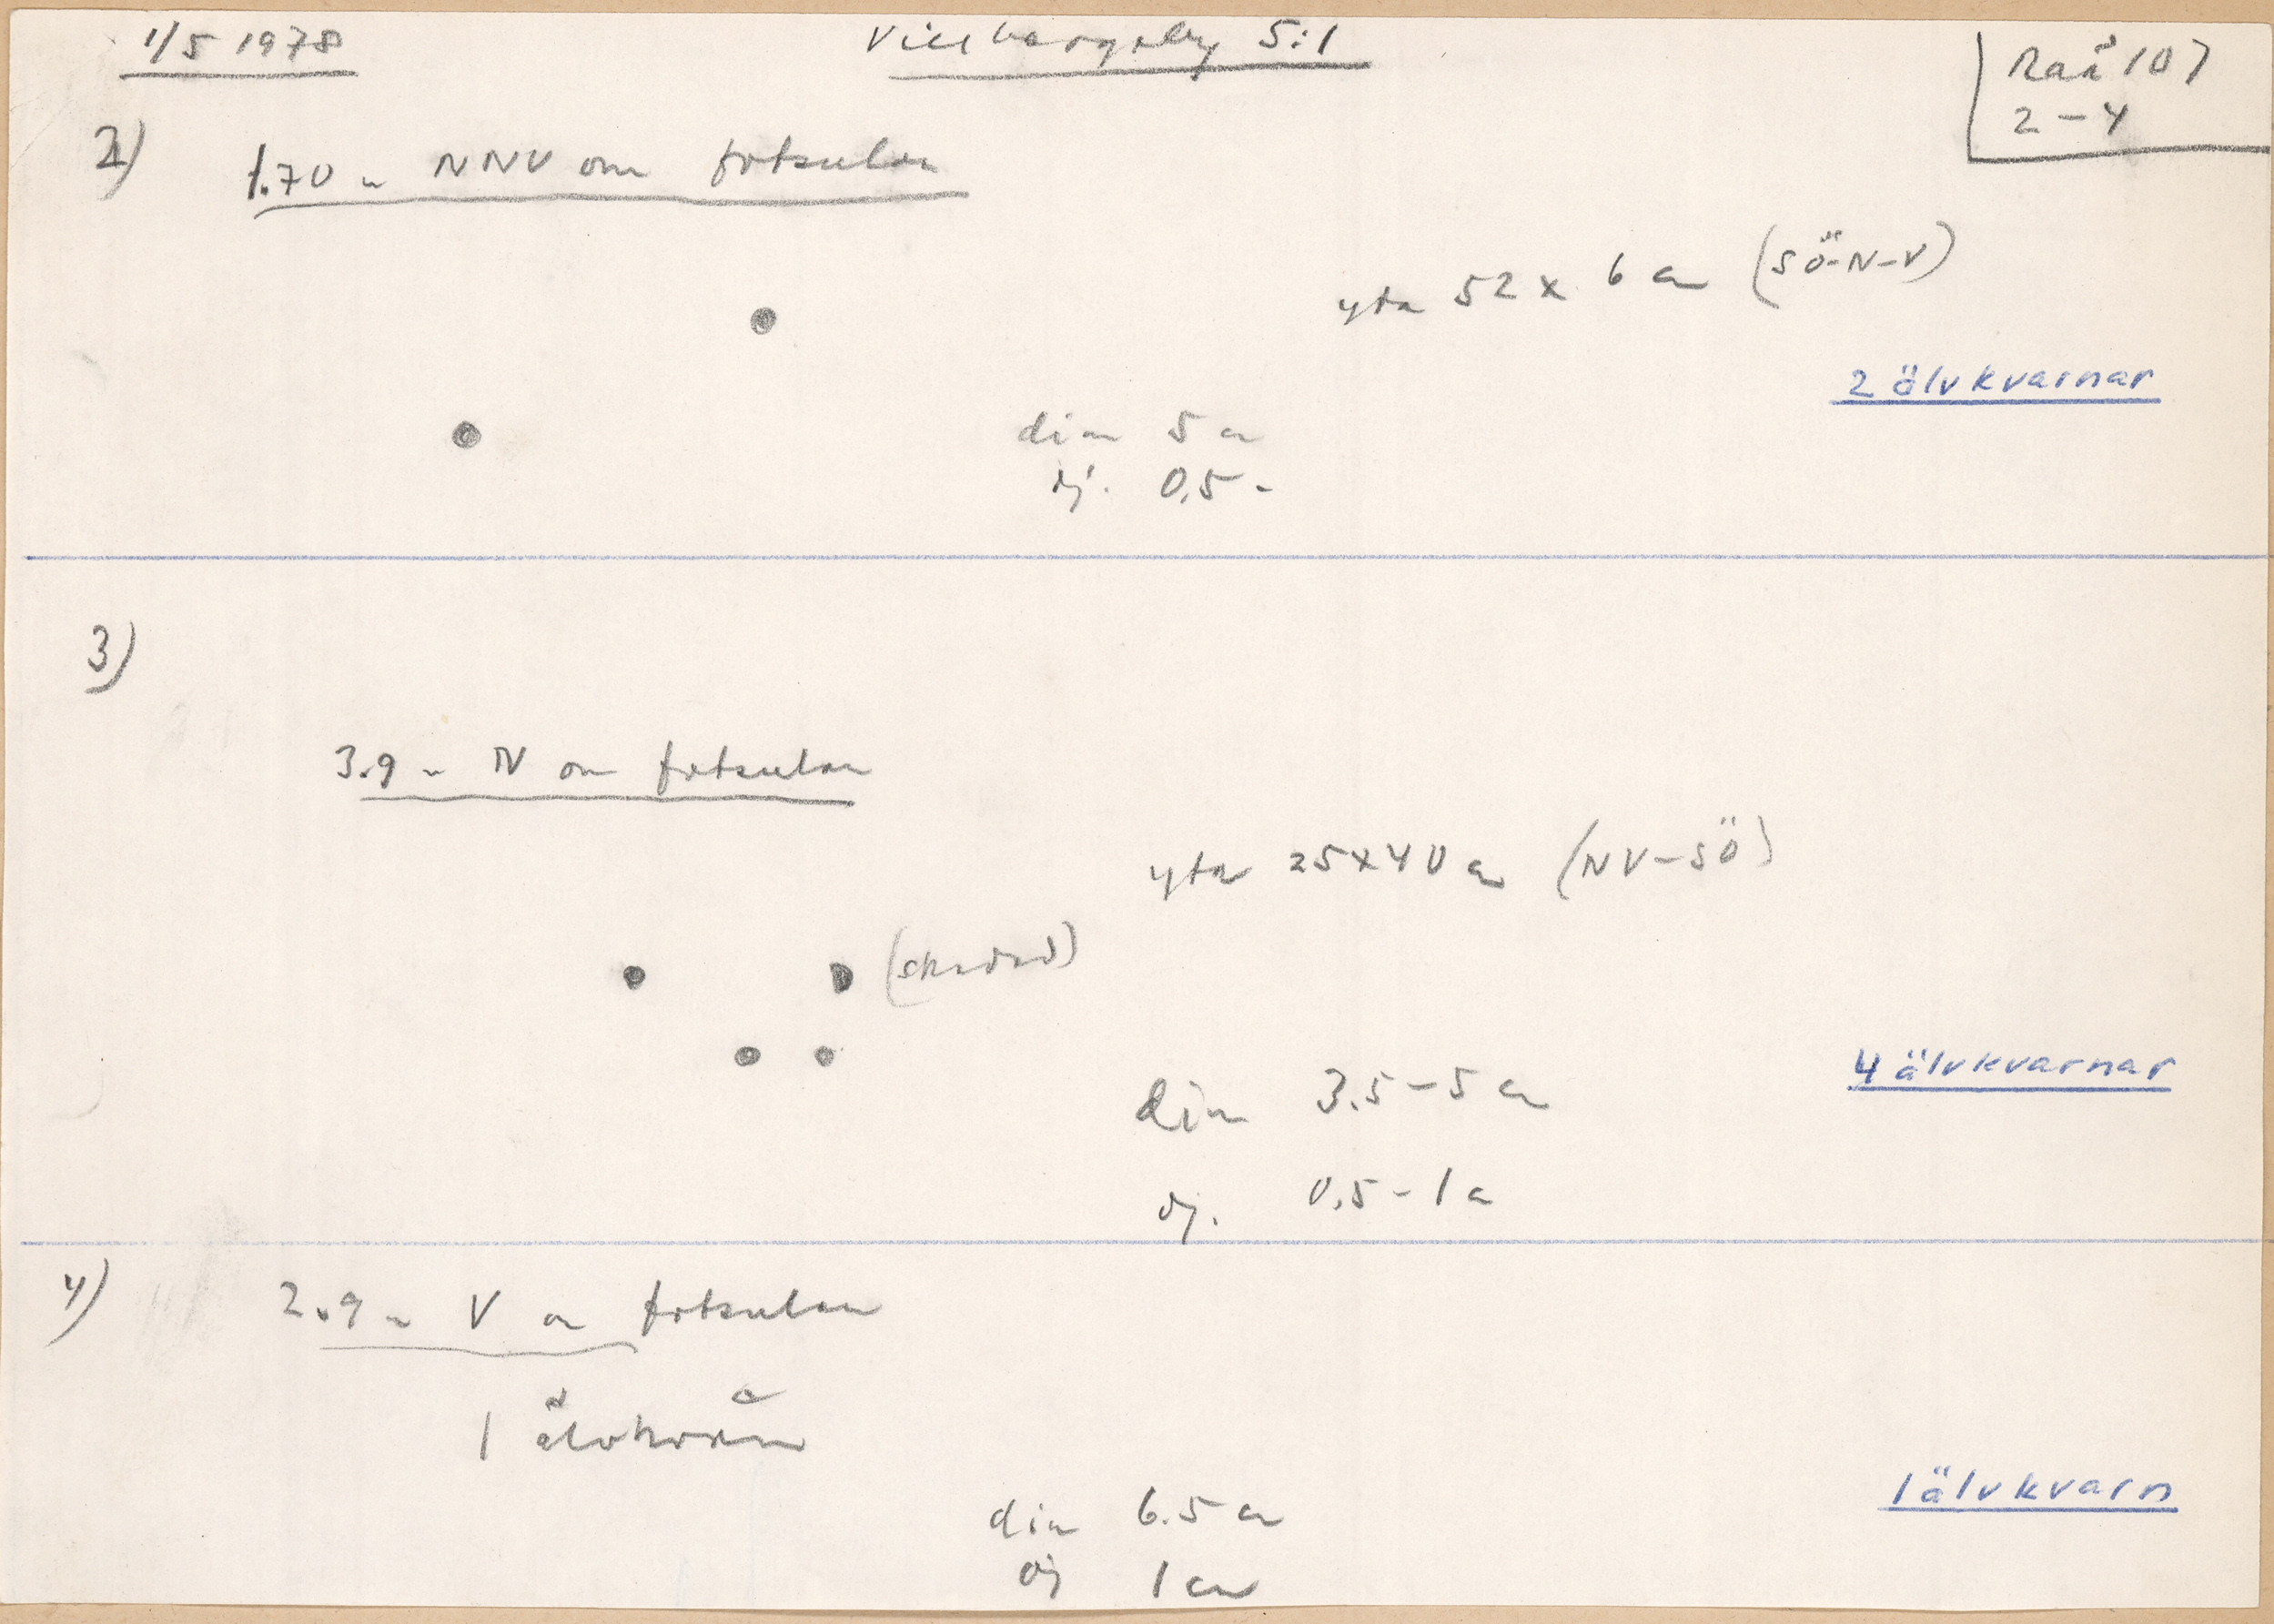 1/5 1978
Villbergaby 5:1
Raä 107
2-4
2)
1.70 m NNV om fotsulan
yta 52 x 6 cm (SÖ-N-V)
2 älvkvarnar
diam 5 cm
dj. 0,5 -
3)
3.9 m N om fotsulan
yta 25x40 cm (NV-SÖ)
(skadad)
4 älvkvarnar
diam 3.5-5 cm
dj. 0.5-1 cm
4)
2.9 m V om fotsulan
1 älvkvarn
1 älvkvarn
diam 6.5 cm
dj 1 cm